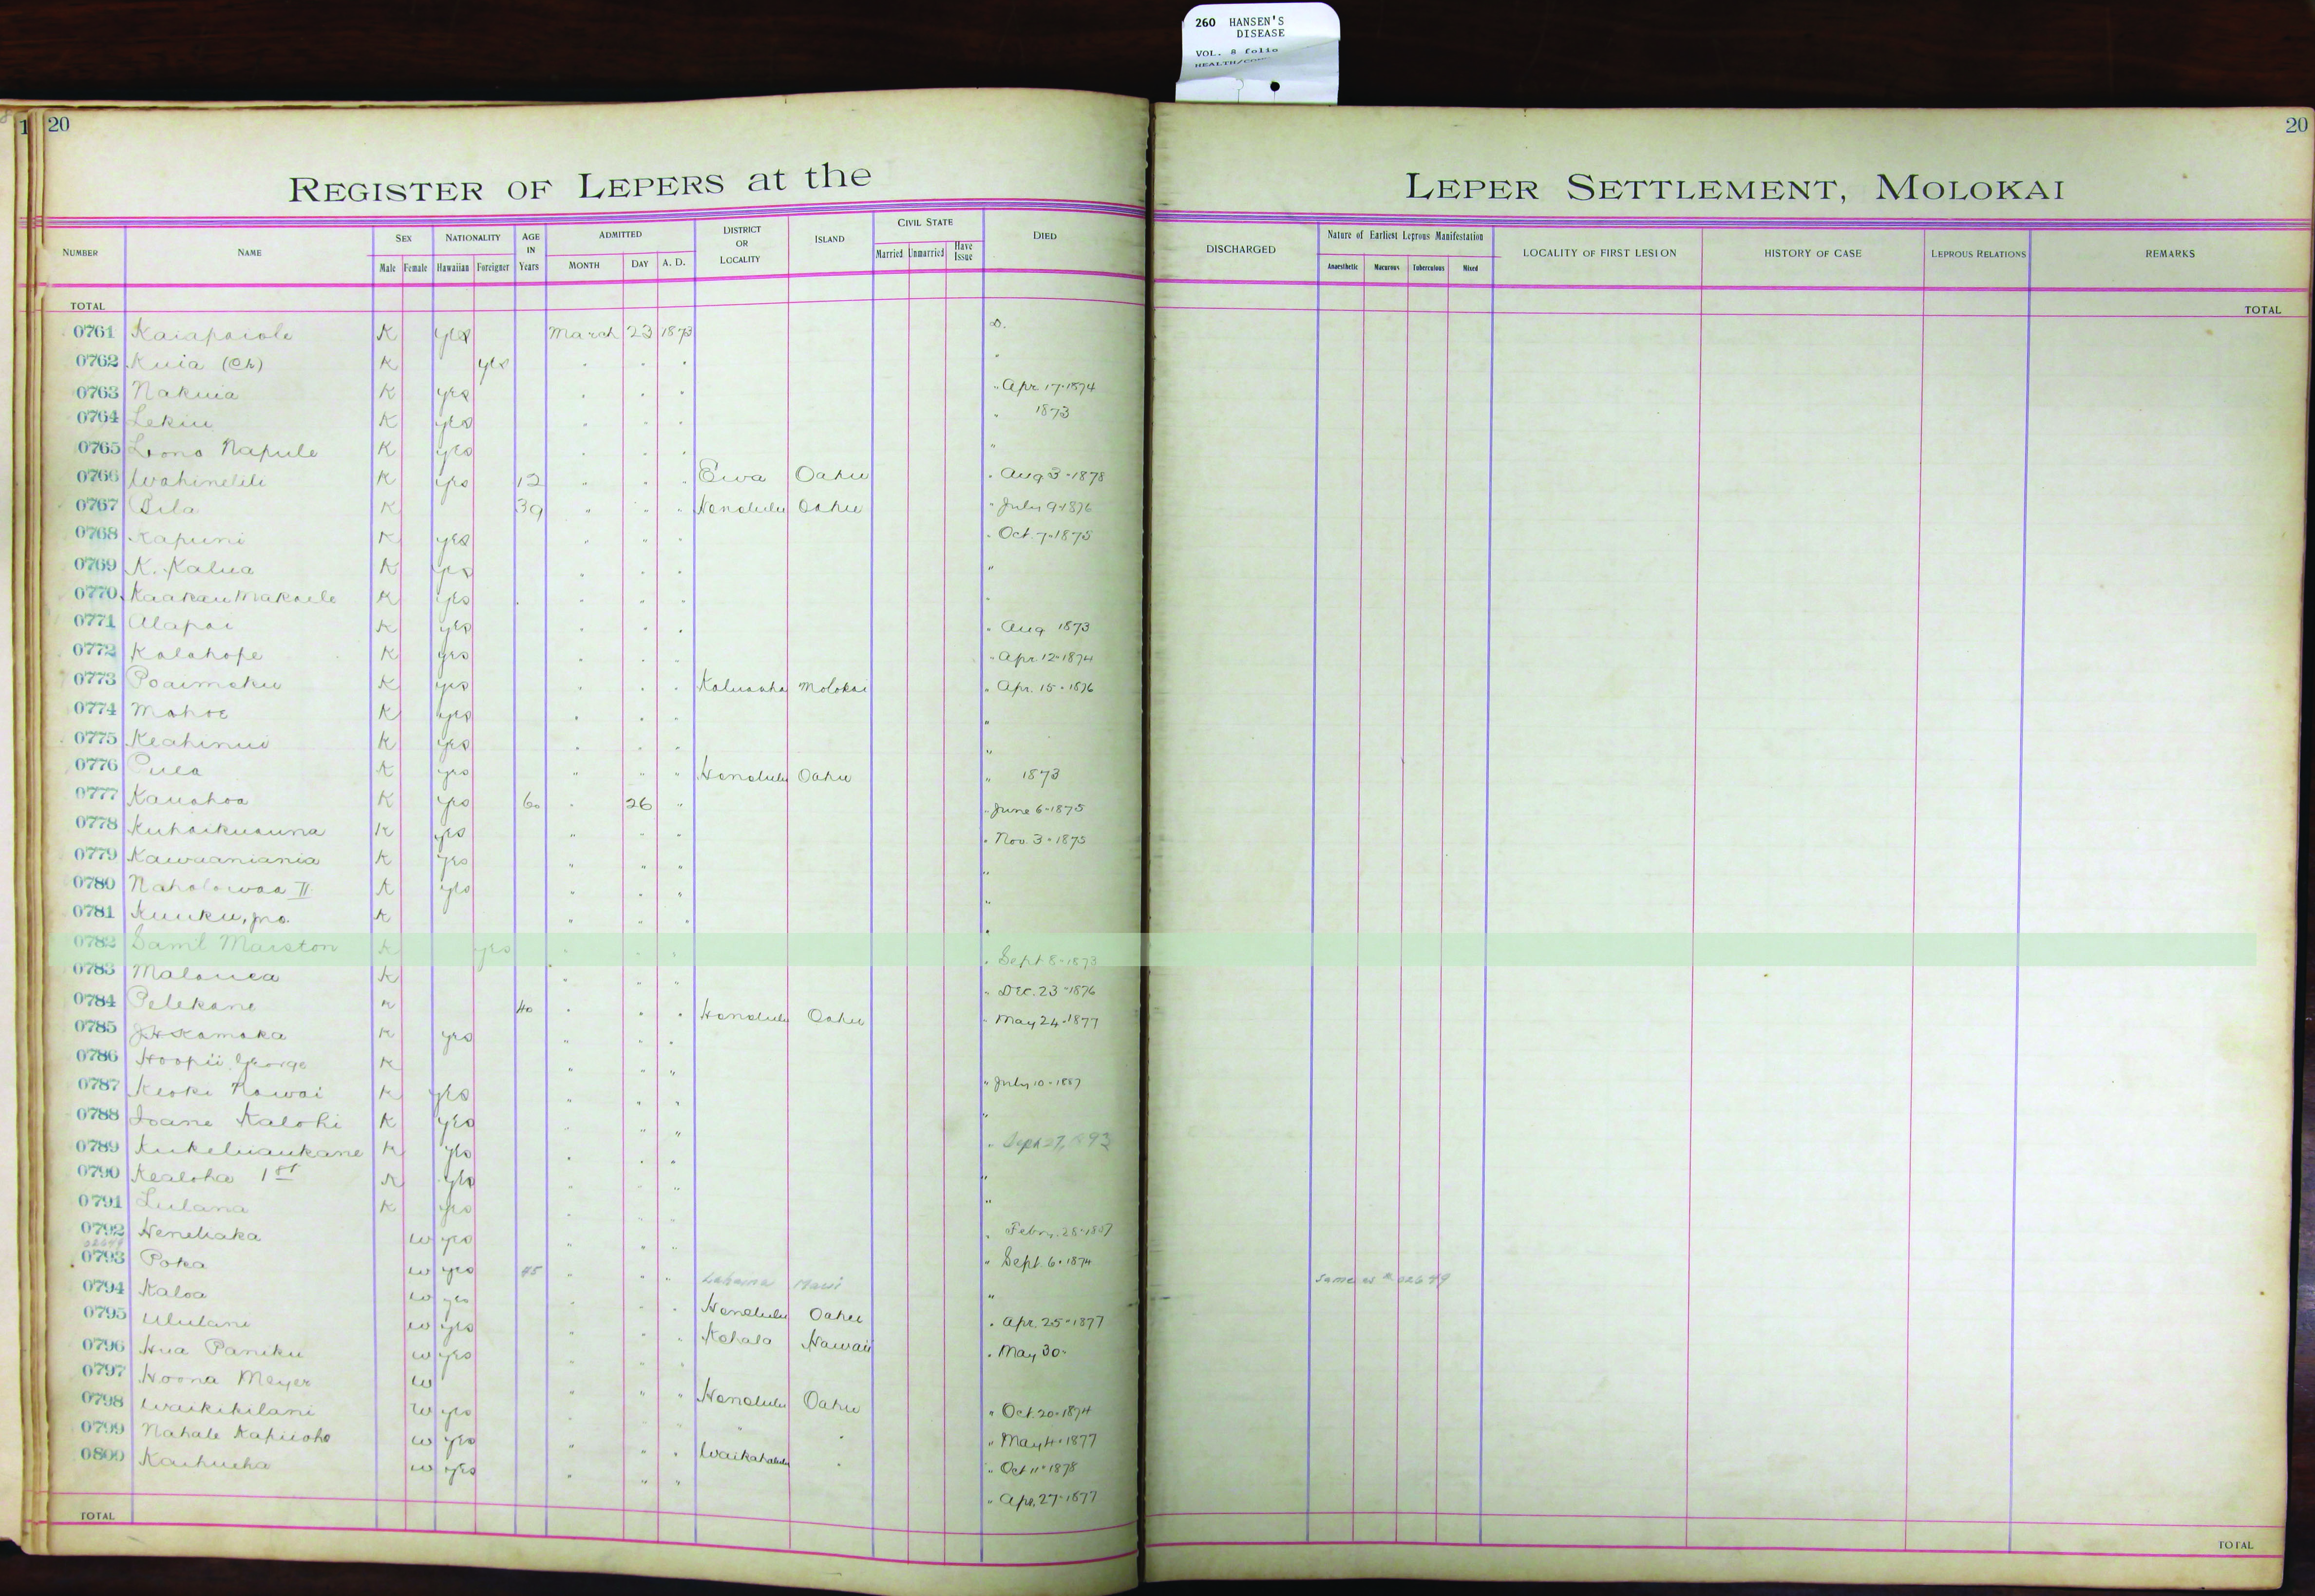 260 HANSEN'S
DISEASE
VOL. 8 folio
1 20
20
REGISTER OF LEPERS at the LEPER SETTLEMENT, MOLOKAI
NUMBER NAME SEX Male Female NATIONALITY Hawaiian Foreigner AGE IN Years ADMITTED MONTH DAY A. D. DISTRICT OR LOCALITY ISLAND CIVIL STATE Married Unmarried Have Issue DIED
DISCHARGED Nature of Earliest Leprous Manifestation Anaesthetic Macurous Tuberculous Mixed LOCALITY OF FIRST LESION HISTORY OF CASE LEPROUS RELATIONS REMARKS
TOTAL TOTAL
0761 Kaiapaiole K yes March 23 1873 D.
0762 Kuia (Ch) K yes " " " "
0763 Nakuia K yes " " " " Apr. 17-1874
0764 Lekiu K yes " " " " 1873
0765 Lono Napule K yes " " " "
0766 Wahinelili K yes 12 " " " Ewa Oahu " Aug 3-1878
0767 Pila K 39 " " " Honolulu Oahu " July 9-1876
0768 Kapuni K yes " " " " Oct. 7-1875
0769 K. Kalua K yes " " " "
0770 Kaakau Makaele K yes " " " "
0771 Alapai K yes " " " " Aug 1873
0772 Kalahope K yes " " " " Apr. 12-1874
0773 Poaimoku K yes " " " Kaluaaha Molokai " Apr. 15-1876
0774 Mahoe K yes " " " "
0775 Keahinui K yes " " " "
0776 Pula K yes " " " Honolulu Oahu " 1873
0777 Kauahoa K yes 60 " 26 " " June 6-1875
0778 Kuhaikuauna K yes " " " " Nov. 3-1875
0779 Kawaaniania K yes " " " "
0780 Naholowaa II K yes " " " "
0781 Kuuku, Jno. K " " " "
0782 Saml Marston K yes " " " " Sept 8-1873
0783 Malauea K " " " " Dec. 23-1876
0784 Pelekane K 40 " " " Honolulu Oahu " May 24-1877
0785 J H Kamaka K yes " " "
0786 Hoopii George K " " " " July 10-1887
0787 Keoki Nawai K yes " " " "
0788 Ioane Kalohi K yes " " " " Sept 27,
0789 Kukeliaukane K yes " " " "
0790 Kealoha 1st K yes " " " "
0791 Lulana K yes " " " " Febr. 28-
0792 Heneliaka w yes " " " " Sept. 6-1874
02649
0793 Poka w yes 45 " " " Lahaina Maui " Same as # 02649
0794 Kaloa w yes " " " Honolulu Oahu " Apr. 25-1877
0795 Ululani w yes " " " Kohala Hawaii " May 30-
0796 Hua Paniku w yes " " "
0797 Hoona Meyer w " " " Honolulu Oahu " Oct. 20-1874
0798 Waikikilani w yes " " " " " May 4-1877
0799 Nahale Kapiioho w yes " " " Waikahalulu " " Oct 11-1878
0800 Kaihueha w yes " " " " Apr. 27-1877
TOTAL TOTAL